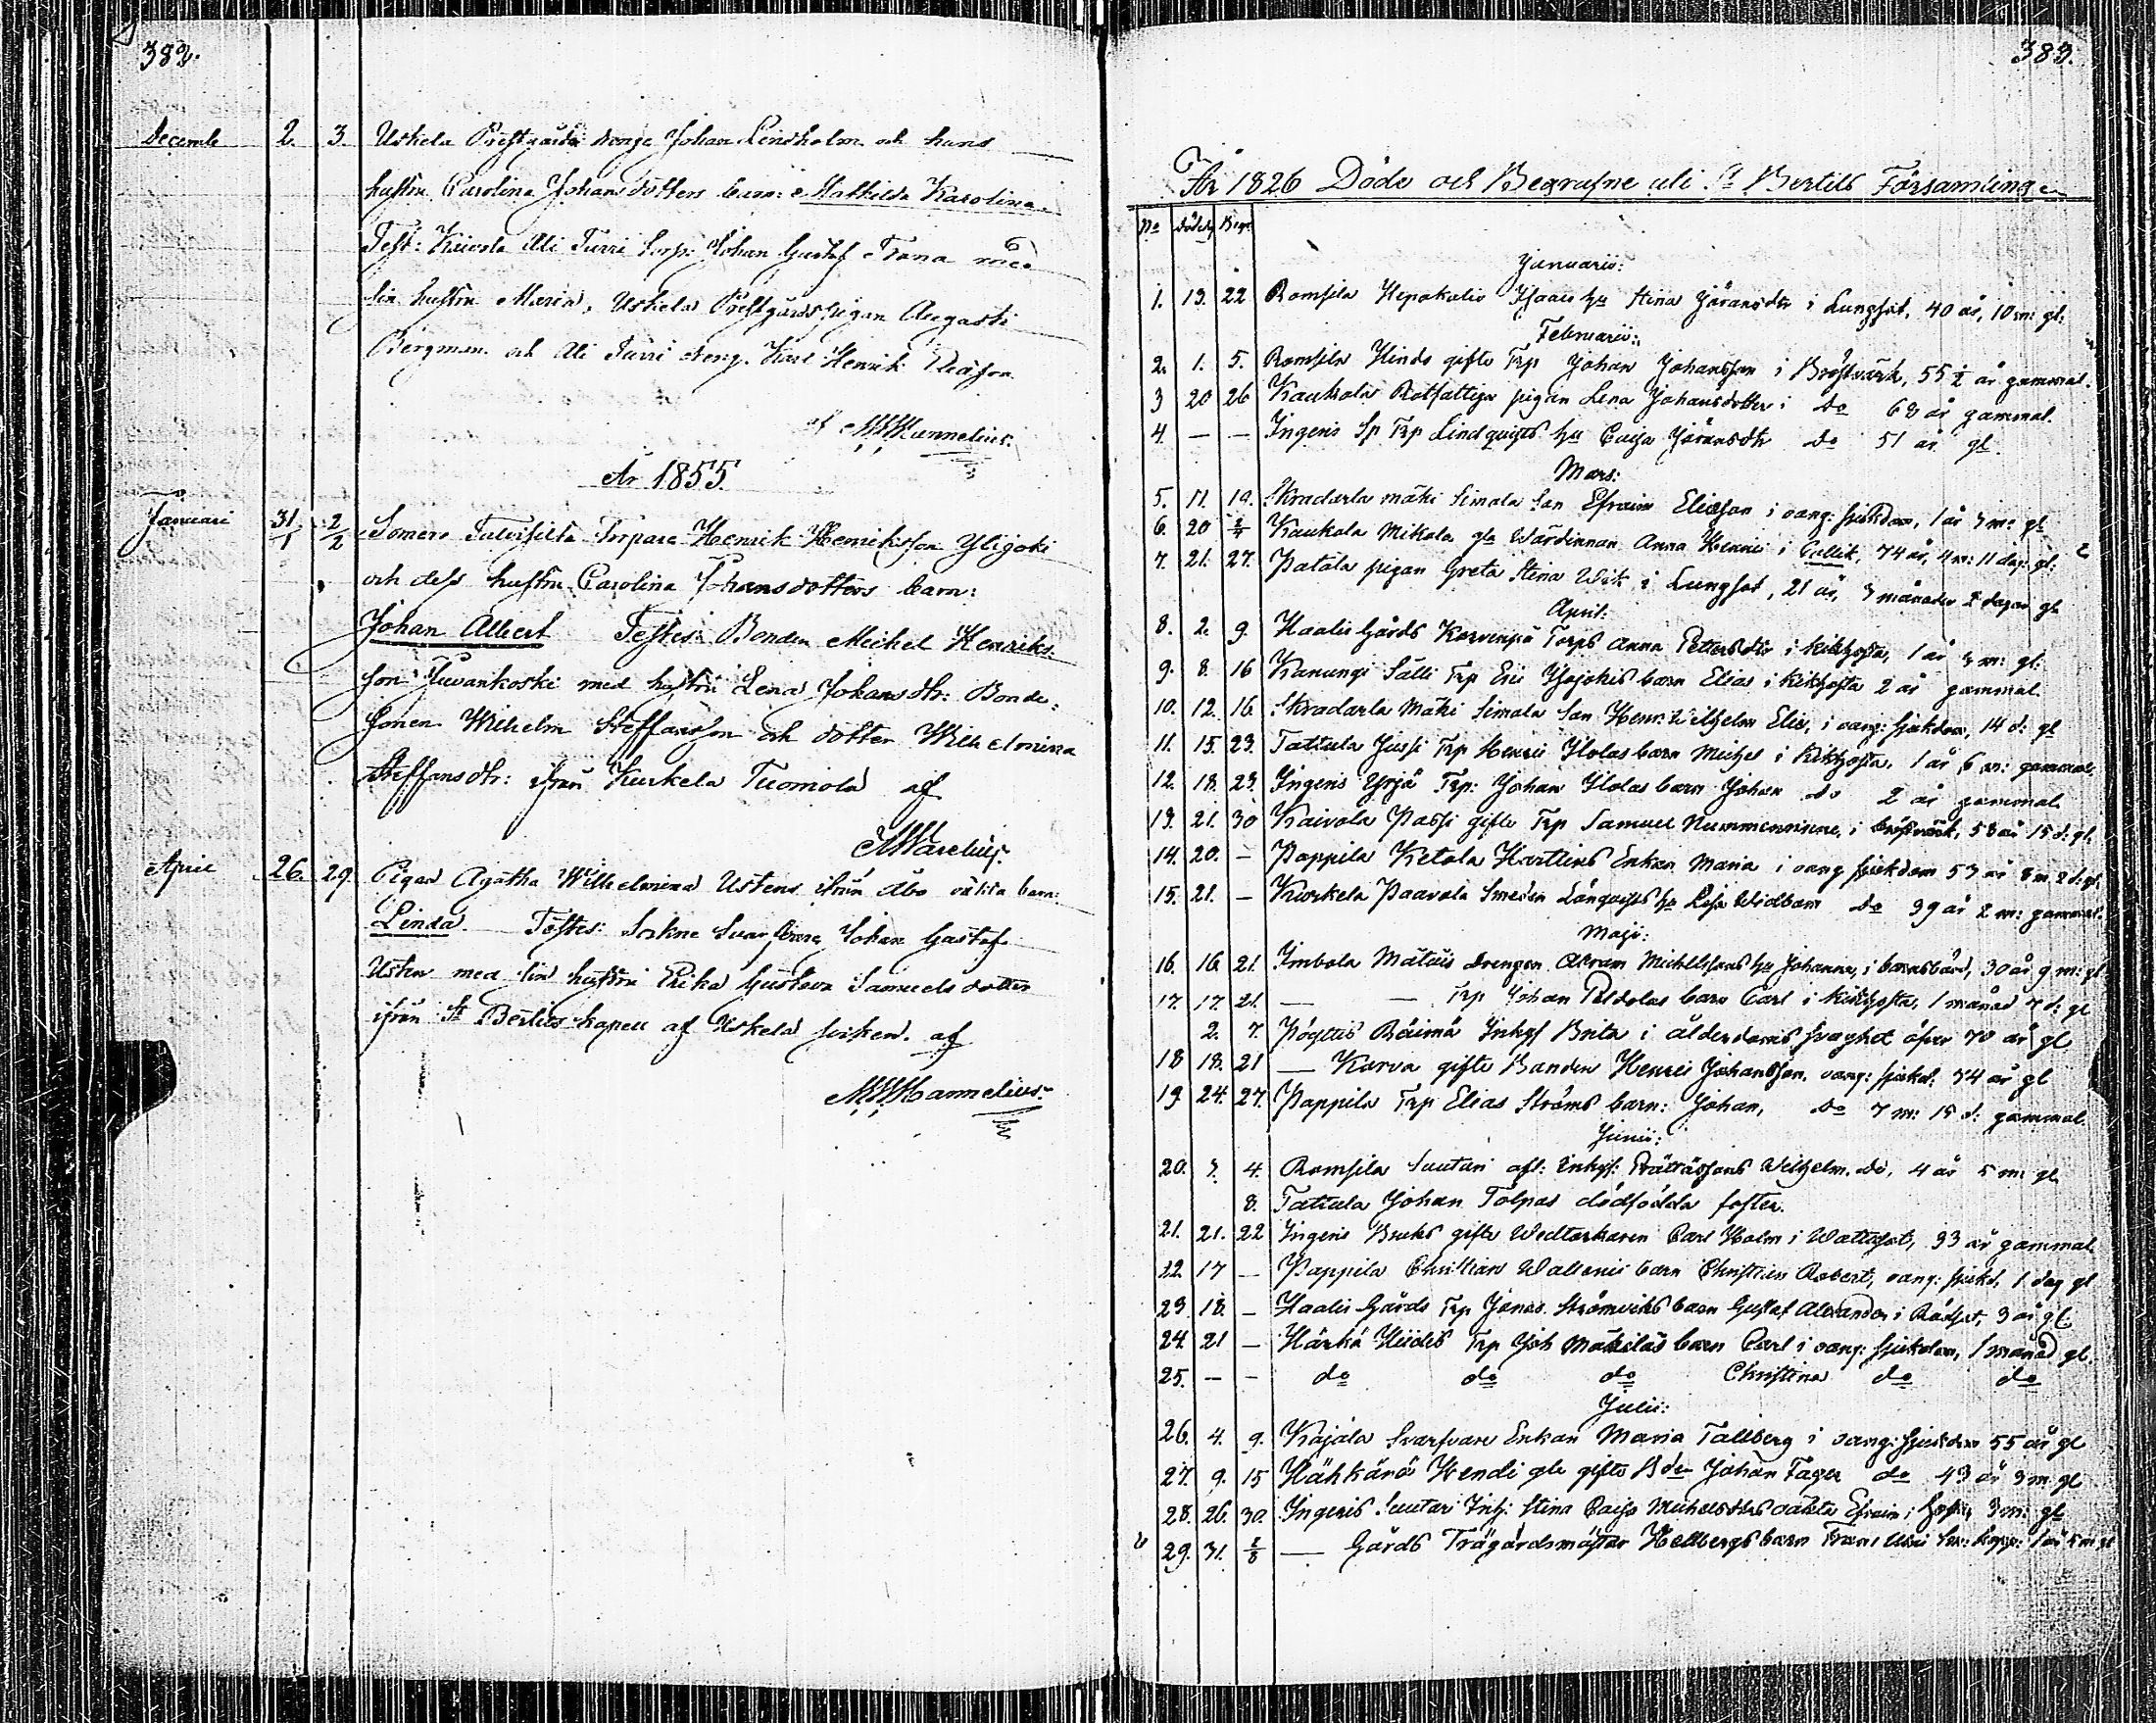 382.
Decemb 2. 3. Uskela Prestgårds drenge Johan Lindholm och hans
hustru Carolina Johansdotters barn: Mathilda Karolina.
Test: Ali Turri Torp: Johan Gustaf Trana med
sin hustru Maria, Uskela Prestgårds pigan Augasti
Bergman och Ali Turri dreng. Karl Henrik
af Mannelius.
År 1855.
Januari 31/1 2/2 Somero Talvisilta Torpare Henrik Henriksson Ylijoki
och dess hustru Carolina Johansdotters barn:
Johan Albert Testes: Bonden Michel Henriks-
son med hustru Lena Johansdtr: Bonde-
sonen Wilhelm Steffansson och dotter Wilhelmina
Steffansdtr: ifrån Kurkela Tuomola af
April 26. 29. Pigan Agatha Wilhelmina Ustens ifrån Åbo oäkta barn:
Linda. Testes: Sockne Svarfvare Johan Gustaf
Usten med sin hustru Erika Gustava Samuelsdotter
ifrån St Bertils kapell af Uskela socken. af
Mannelius.
383.
År 1826 Döde och Begrafne uti St Bertils Församling
No Död Begr
Januarii:
1. 13. 22 Romsila Hepokalio Isaacs hu Stina Jöransdtr i Lungsot, 40 år, 10 m: gl:
Februarii:
2. 1. 5. Romsila Hinds gifte Trp Johan Johansson i Bröstvärk, 55 1/2 år gammal.
3 20 26 Kaukola Rotfattiga pigan Lena Johansdotter i do 68 år gammal.
4. — — Ingeris Sp Trp Lindquists hu Caisa Jöransdtr do 51 år gl.
Mars:
5. 11. 19. Skradarla mäki Simola Son Efraim Eliasson i oang: sjukdom, 1 år 3 m: gl
6. 20 Kaukola Mikola gla Wärdinnan Anna i 74 år, 4 m: 11 dag: gl:
7. 21. 27. Patala pigan Greta Stina Wik i Lungsot, 21 år, 3 månader 2 dagar gl
April:
8. 2. 9. Haalis Gårds Karvenpä Torps Anna Pettersdtr i kikhosta, 1 år 3 m: gl:
9. 8. 16 Kanungi Sälli Trp Eric barn Elias i kikhosta 2 år gammal
10. 12. 16. Skradarla Mäki Simola Son Henr: Wilhelm Elis, i oang: sjukdom, 14 d: gl
11. 15. 23. Tattula Jussi Trp Henric Ilolas barn Michel i Kikhosta, 1 år 6 m: gammal.
12. 18. 23. Ingeris Yrjä Trp: Johan Ilolas barn Johan do 2 år gammal
13. 21. 30 Kaivola Passi gifte Trp Samuel i bröstvärk, 58 år 15 d: gl.
14. 20. — Pappila Ketola Hartlins Enkan Maria i oang sjukdom 53 år 8 m 2 d: gl:
15. 21. — Kurkela Paavola Smeden Långquists hu Lisa Widbom do 39 år 2 m: gammal.
Maji:
16. 16. 21. Imbola drengen Abram Michelssons hu Johanna, i barnsbörd, 30 år 9 m: gl
17. 17. 21. — — Trp Johan Peldolas barn Carl i kikhosta, 1 månad 7 d: gl
2. 7. Pöytiö Räimä Inhys Brita i ålderdoms svaghet öfver 70 år gl
18 18. 21 — Karva gifte Bonden Henric Johansson, oang: sjukd. 34 år gl
19 24. 27. Pappila Trp Elias Ströms barn: Johan, do 7 m: 15 d: gammal.
Junii:
20. 3. 4. Romsila Suutari afl: Inhys: Wilhelm. do, 4 år 5 m: gl
8. Tattula Johan Tölpas dödfödda foster.
21. 21. 22 Ingeris Bruks gifte Wedtorkaren Carl Holm i Wattusot, 33 år gammal
22. 17 — Pappila Christian Wallenii barn Christian Robert, oang: sjukd, 1 dag gl
23 18. — Haalis Gårds Trp Jonas Strömviks barn Gustaf Alexander i Rödsot, 3 år gl.
24. 21 — Härkä Hiides Trp Joh Mäkiläs barn Carl i oang: sjukdom, 1 månad gl
25. — — do do do Christina do do
Julii:
26. 4. 9. Kajala Svarfvare Enkan Maria Tallberg i oang: sjukdom 55 år gl
27. 9. 15 Hähkänä Hendi gla gifte Bden Johan Fager do 43 år 3 m gl
28. 26. 30. Ingeris Suutari Inh: Stina Caisa Michelsdtrs oäkta Efraim i hosta, 3 m: gl
29. 31. Gårds Trägårdsmästar Hellbergs barn Frans kopp: 1 år 5 m gl